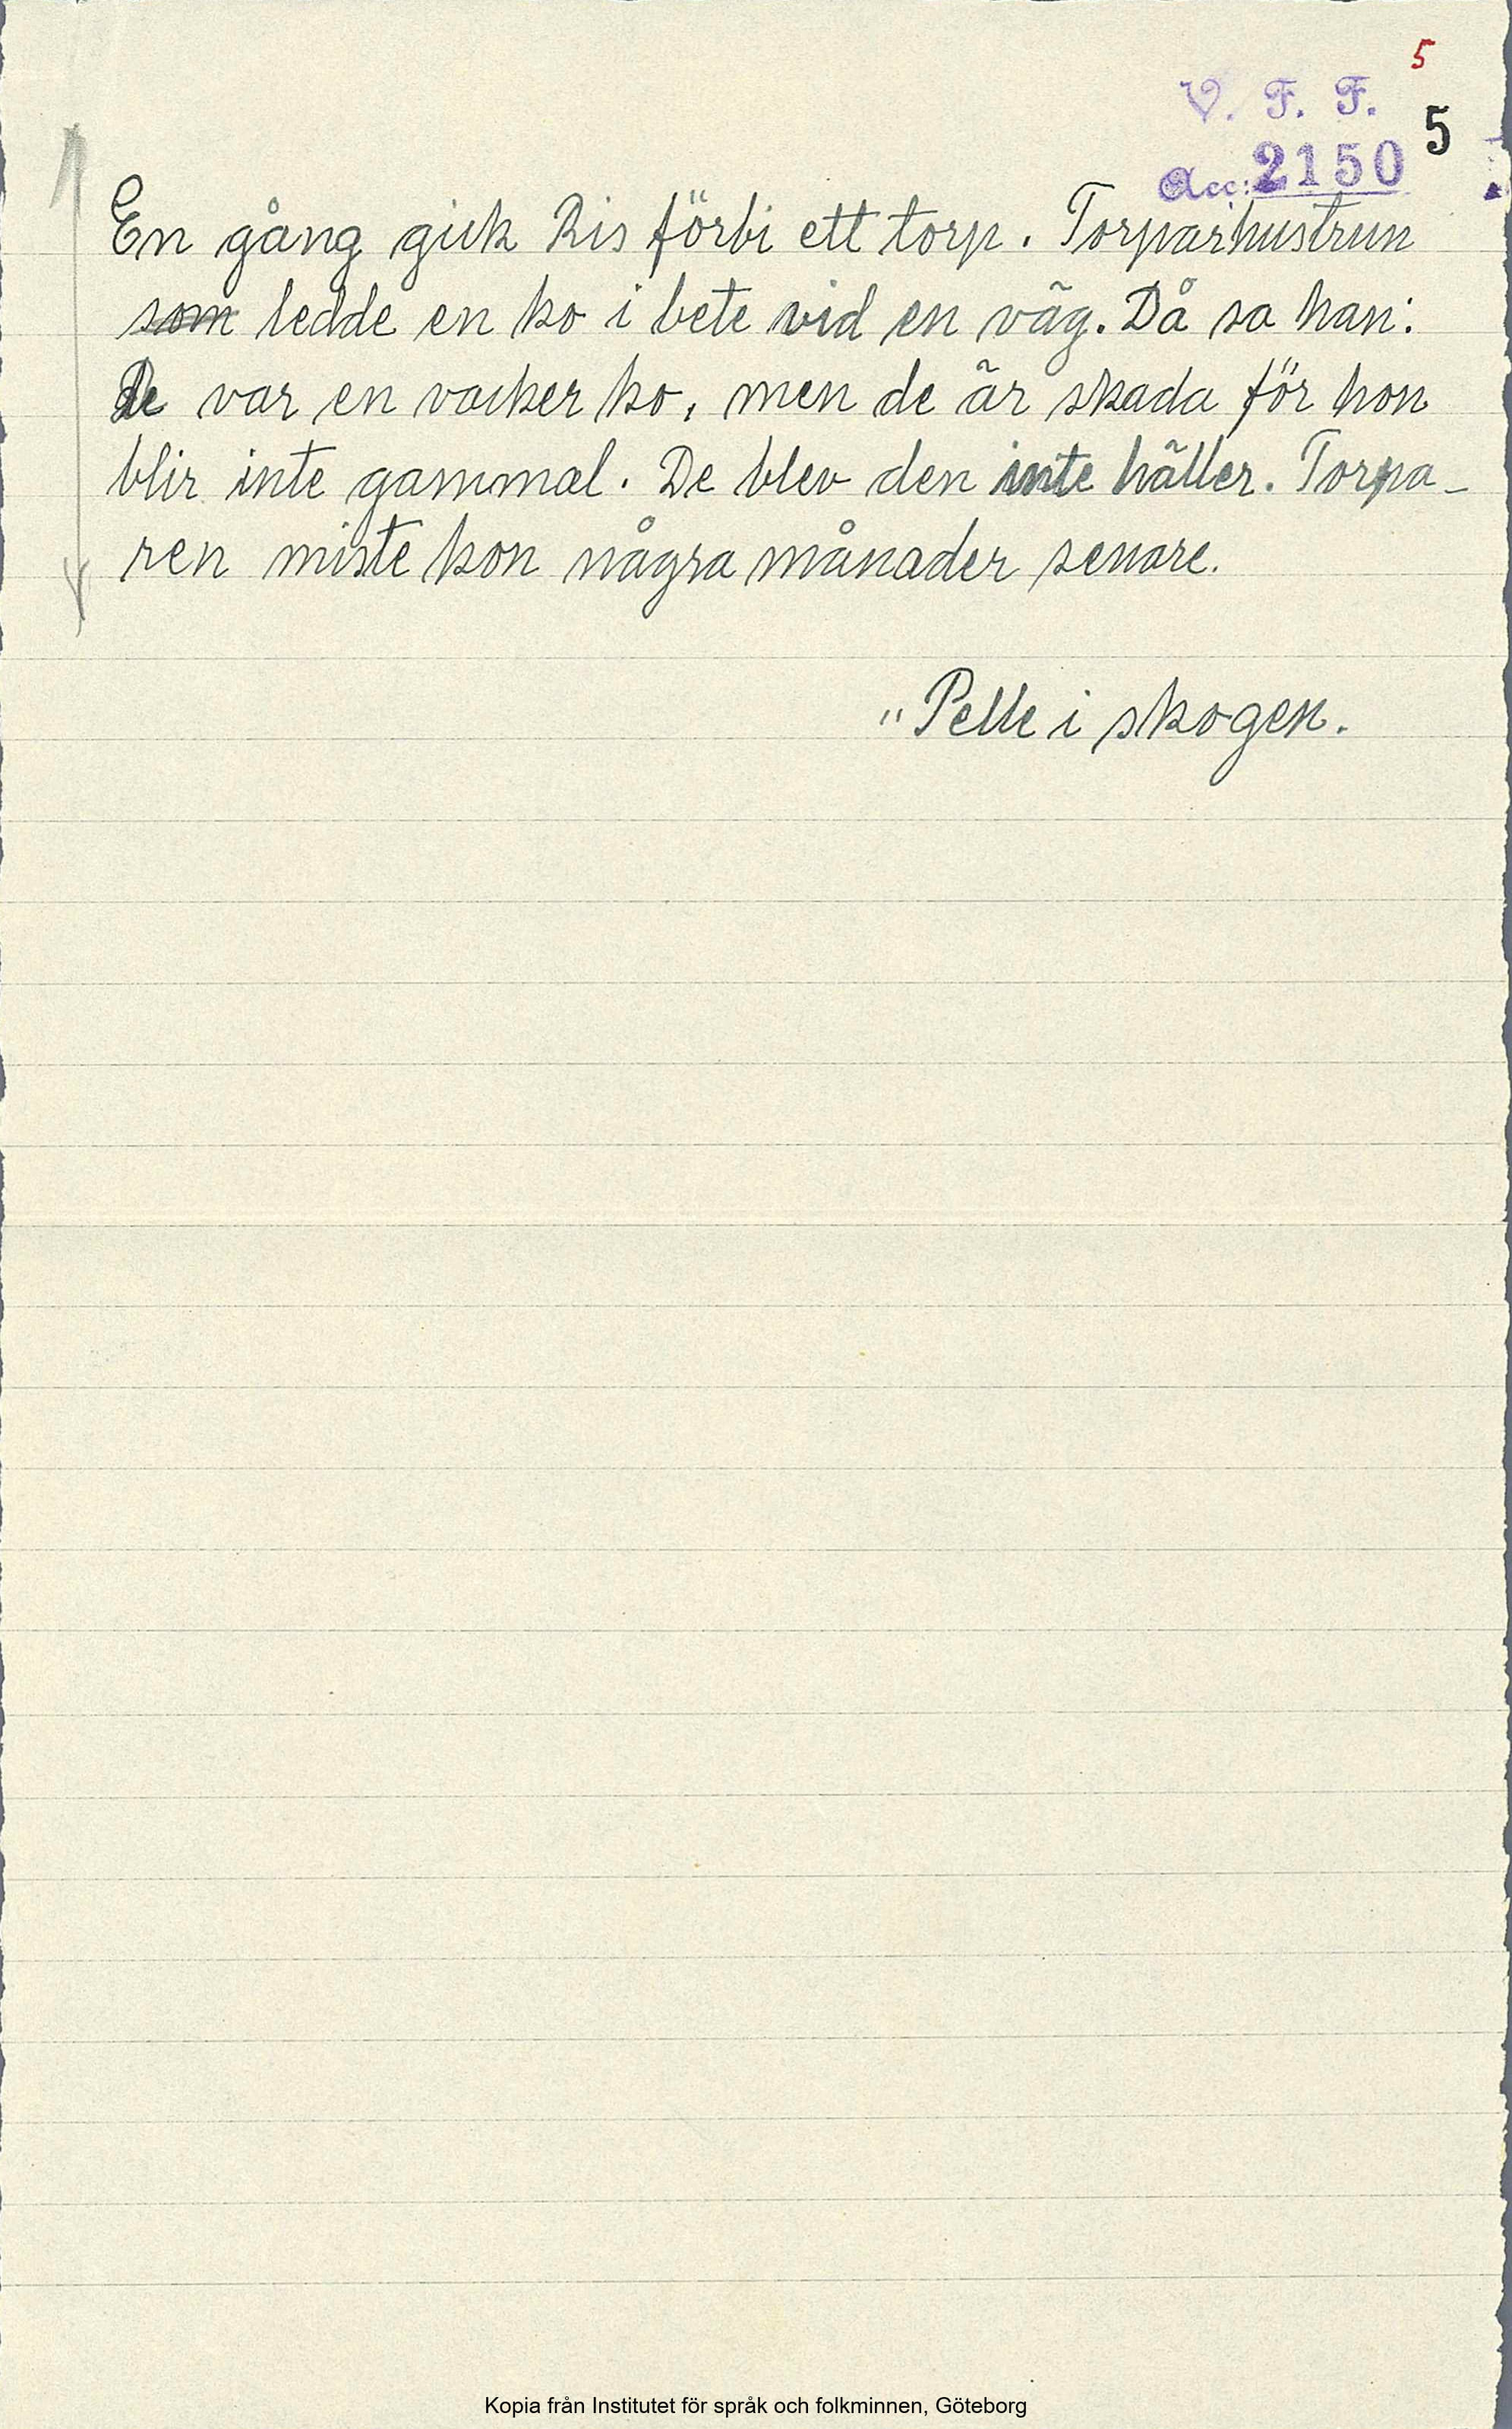 5
V. F. F.
5
Acc: 2150
En gång gick Ris förbi ett torp. Torparhustrun
som ledde en ko i bete vid en väg. Då sa han:
De var en vacker ko, men de är skada för hon
blir inte gammal. De blev den inte häller. Torpa-
ren miste kon några månader senare.
"Pelle i skogen.
Kopia från Institutet för språk och folkminnen, Göteborg